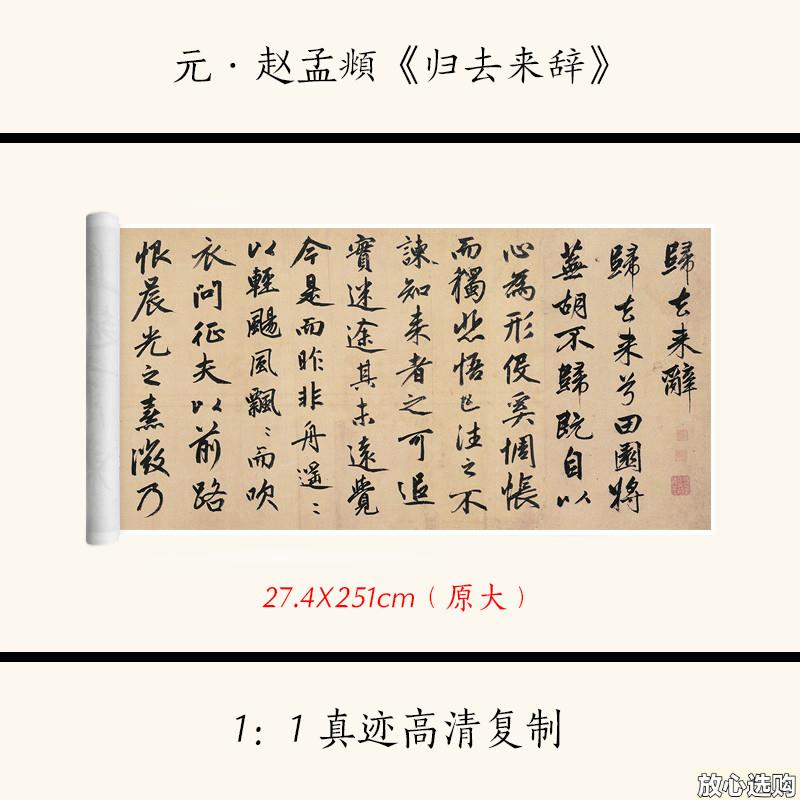 元·赵孟頫《归去来辞》
歸去来辭
歸去来兮田園將
蕪胡不歸既自以
心為形役奚惆悵
而獨悲悟已往之不
諫知来者之可追
實迷途其未遠覺
今是而昨非舟遥〻
以輕颺風飄〻而吹
衣问征夫以前路
恨晨光之熹微乃
27.4X251cm（原大）
1：1真迹高清复制
放心选购